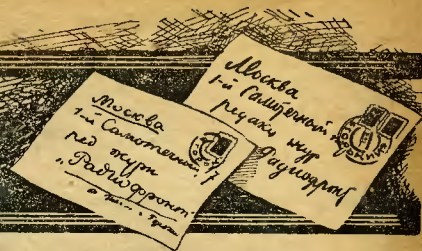 Москва
1-й Самотечный 17
ред журн
"Радиофронт"
Москва
1-й Самотечный
редакц жур
Радиофронт